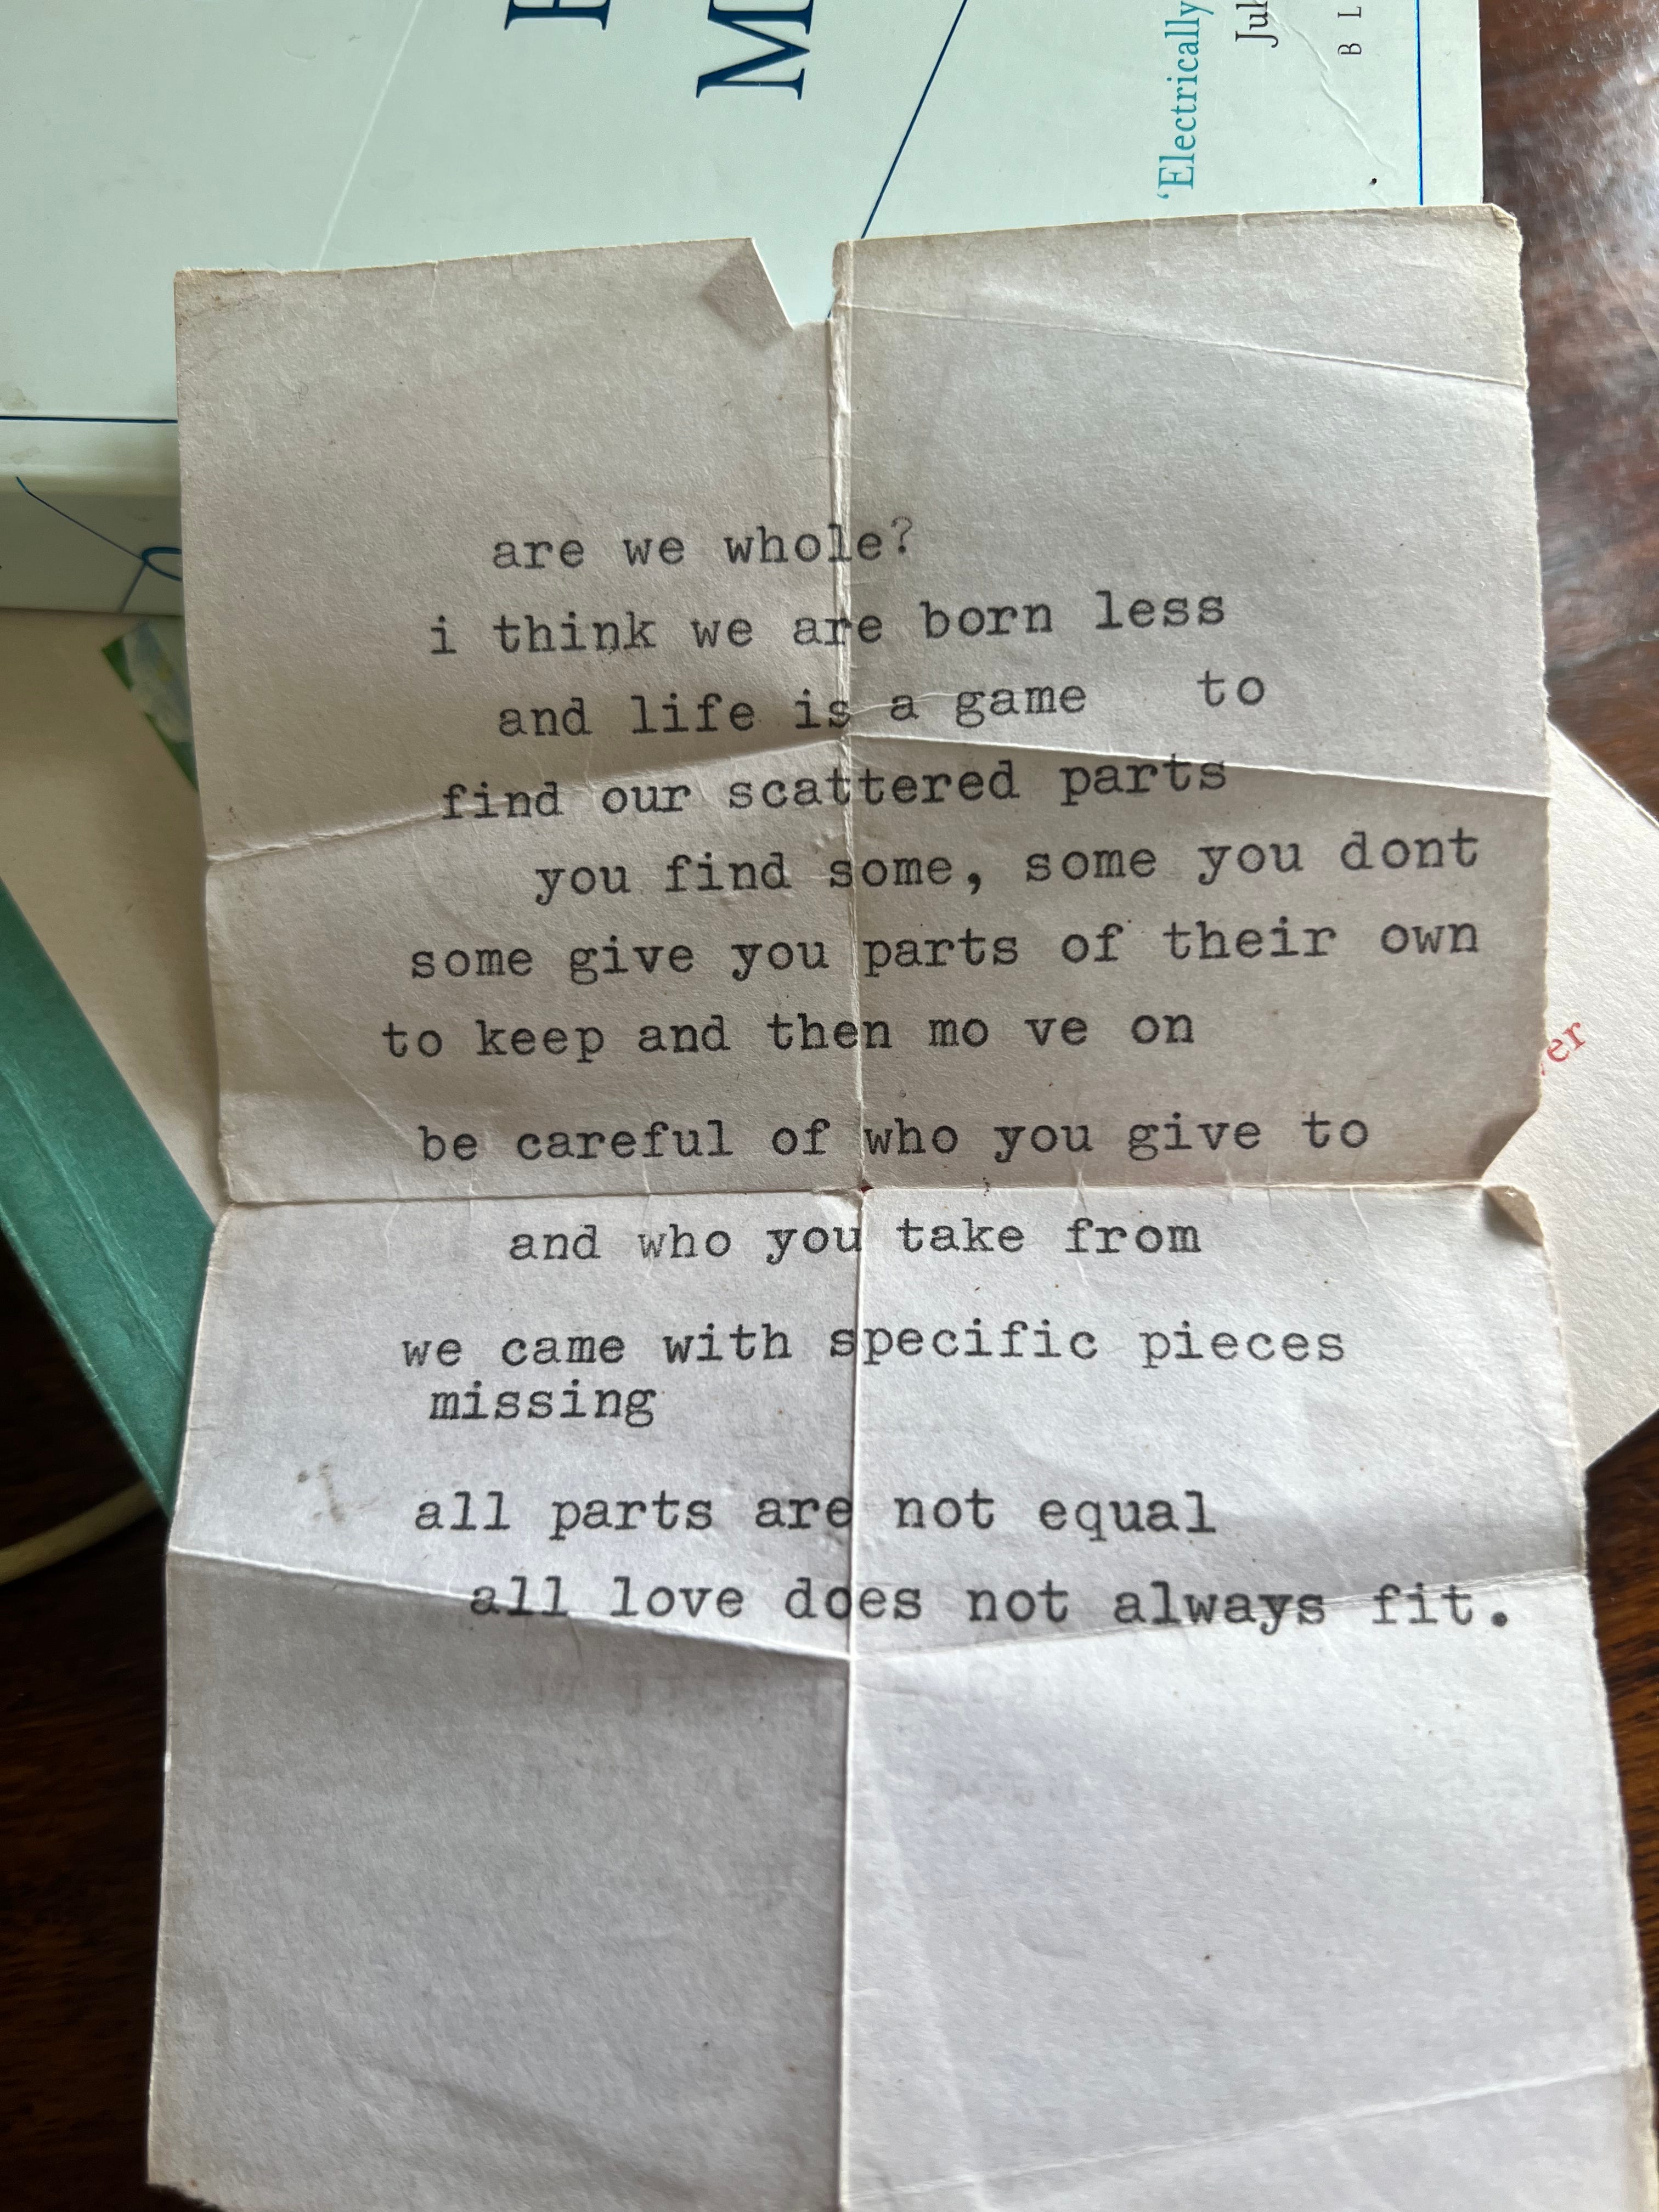 M
'Electrically
B L
are we whole?
i think we are born less
and life is a game    to
find our scattered parts
you find some, some you dont
some give you parts of their own
to keep and then mo ve on
be careful of who you give to
and who you take from
we came with specific pieces
missing
all parts are not equal
all love does not always fit.
er